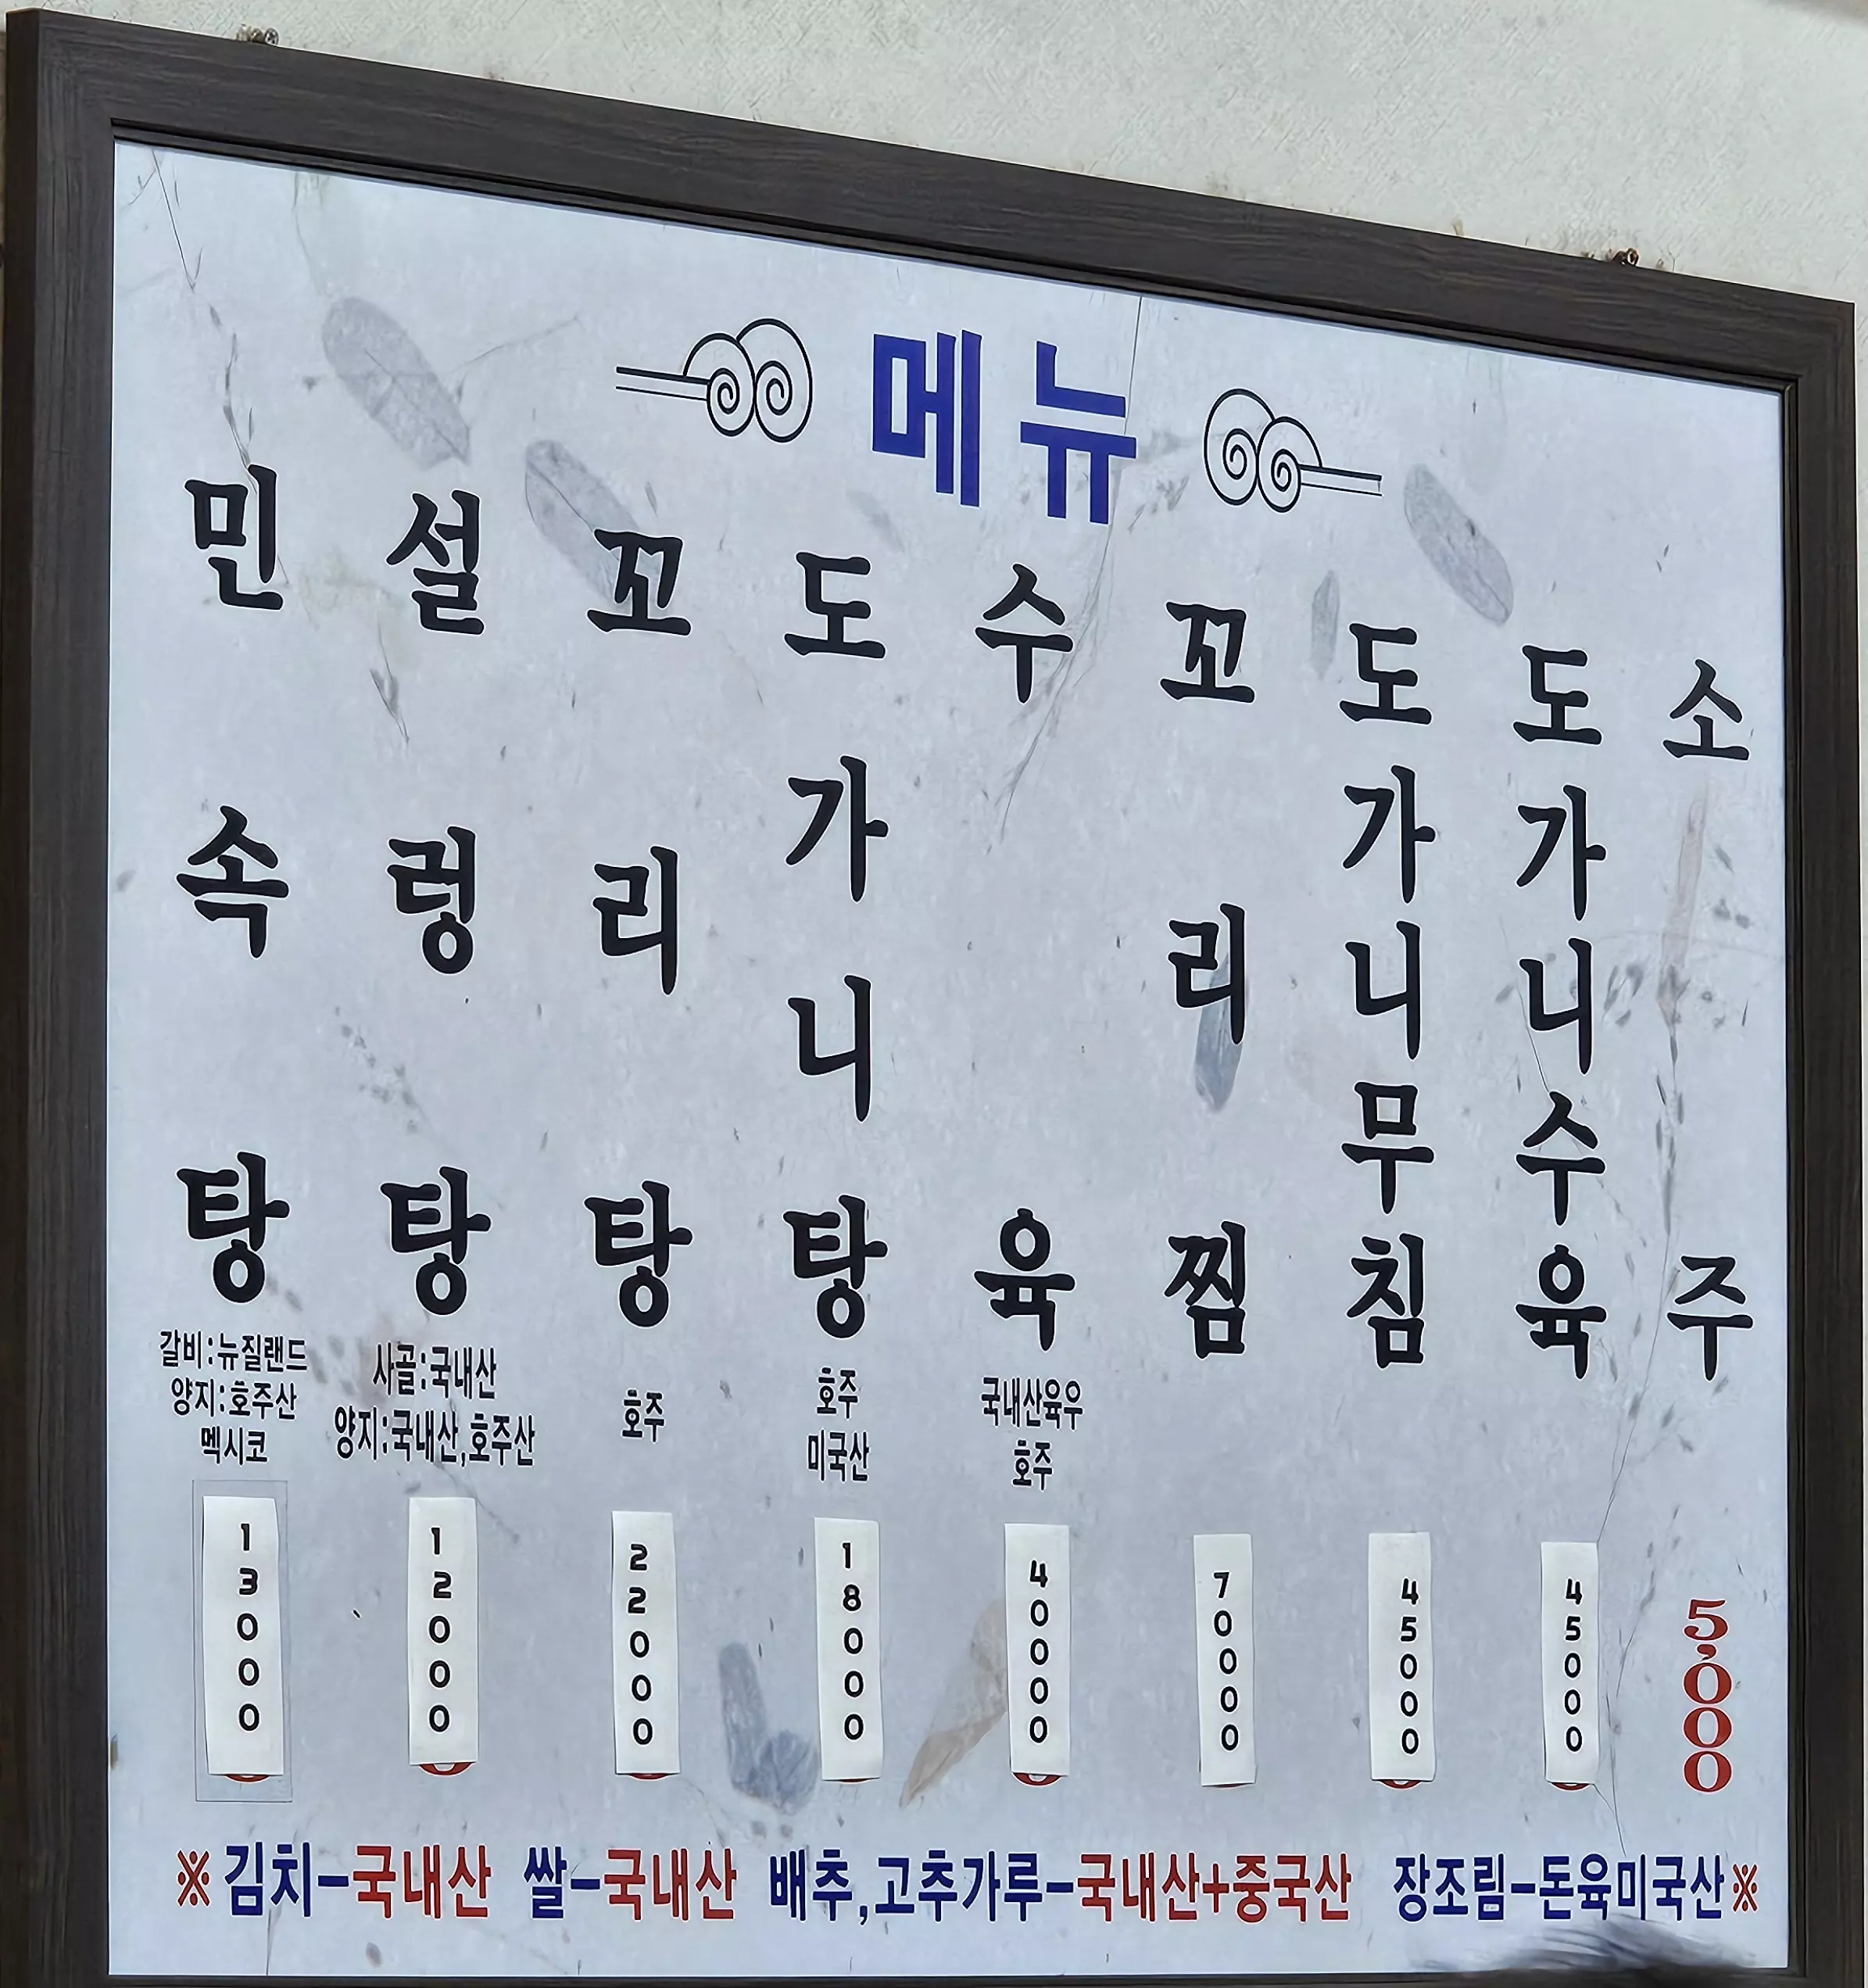 메뉴
민속탕
갈비:뉴질랜드
양지:호주산
멕시코
13000
설렁탕
사골:국내산
양지:국내산,호주산
12000
꼬리탕
호주
22000
도가니탕
호주
미국산
18000
수육
국내산육우
호주
40000
꼬리찜
70000
도가니무침
45000
도가니수육
45000
소주
5,000
※김치-국내산 쌀-국내산 배추,고추가루-국내산+중국산 장조림-돈육미국산※